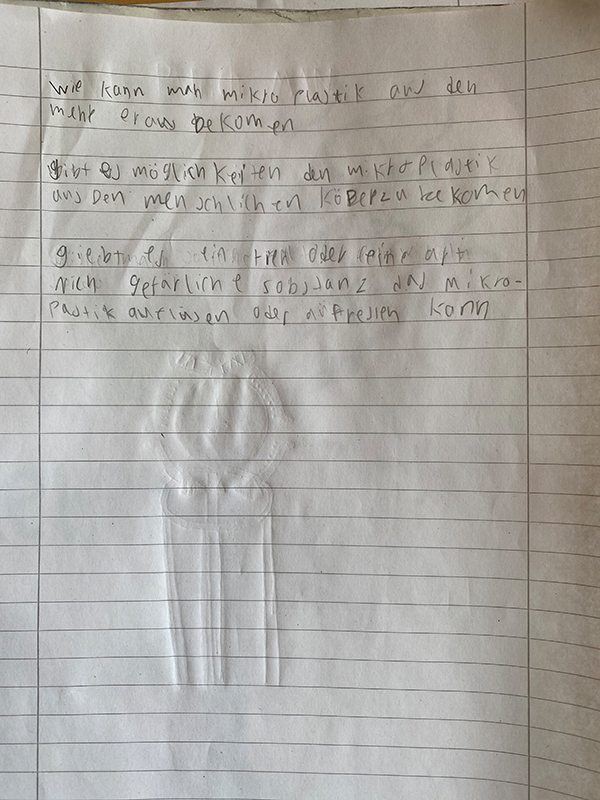 wie kann man mikro Plastik aus den
mehr eraus bekomen
gibt es möglichkeiten den mikroPlastik
aus Den menschlichen KöBerzu bekomen
giebt es ein tier oder eine art
nich gefärliche sobsdanz das mikro-
Pastik auflüsen oder auffressen kann